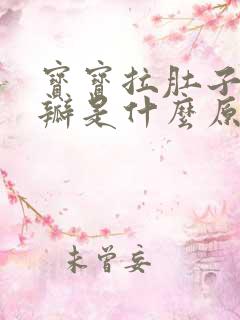 寶寶拉肚子
瓣是什麼原
未曾妄